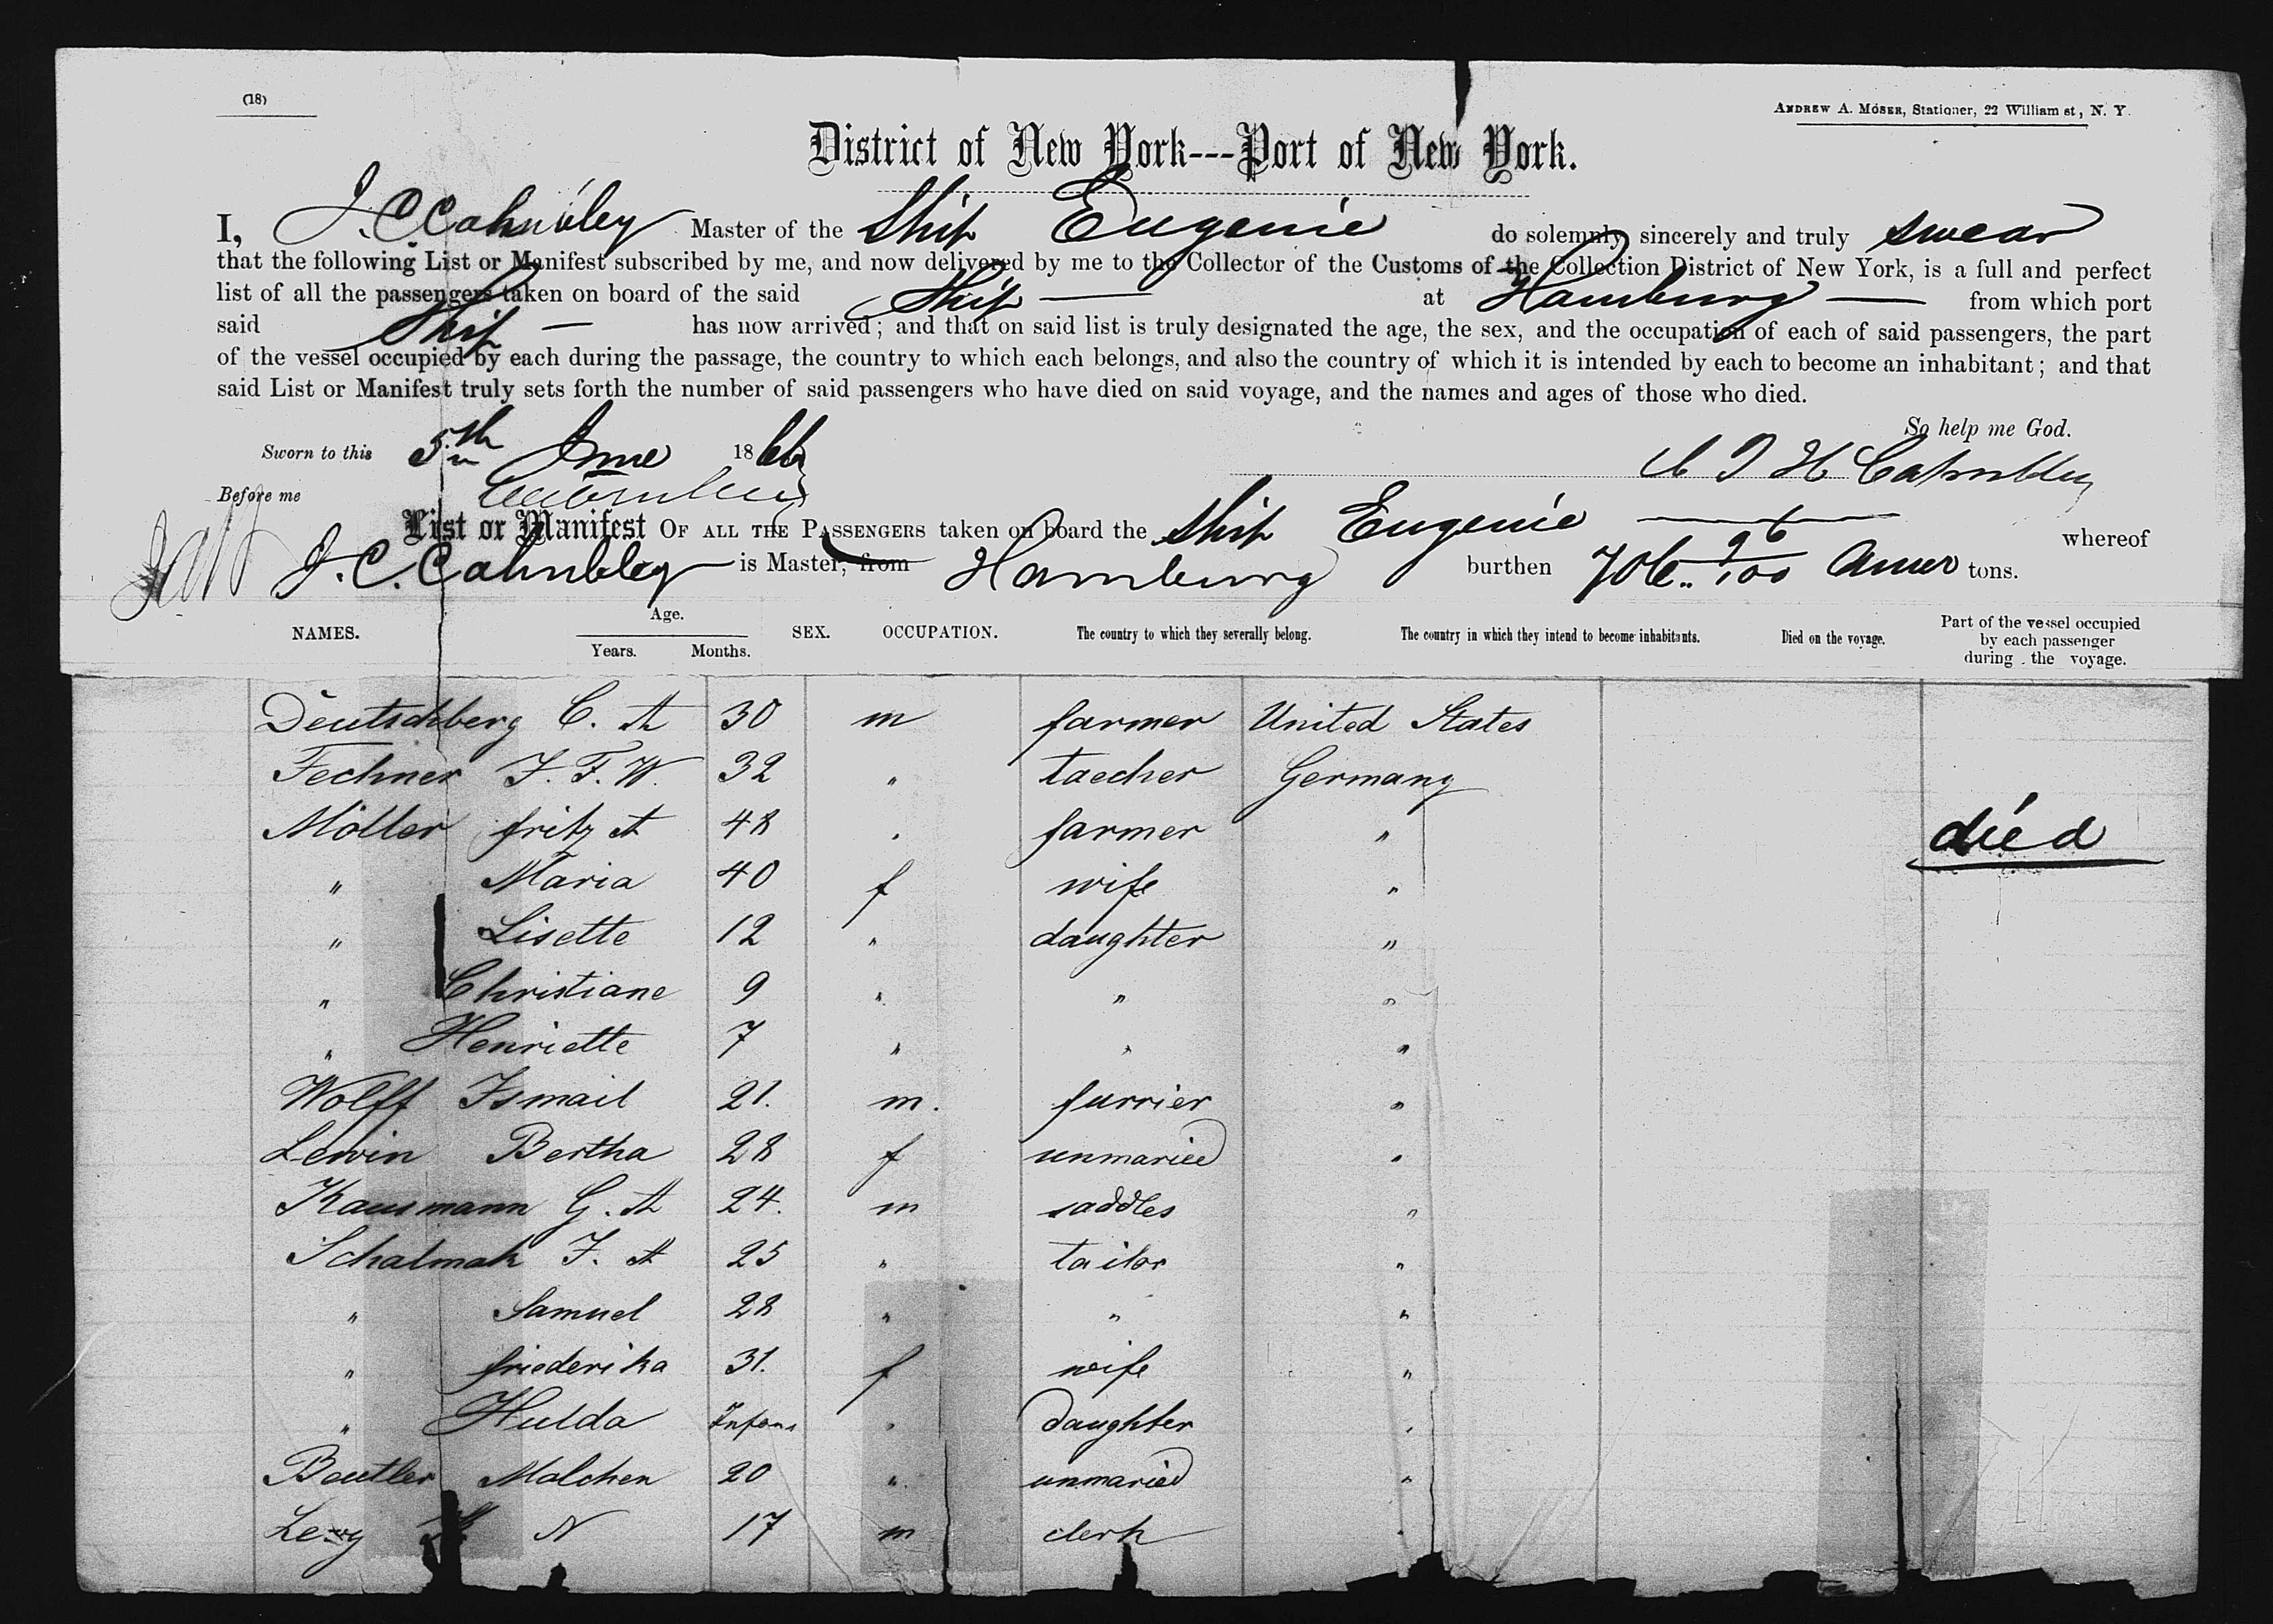 (18)
ANDREW A. MOSER, Stationer, 22 William st, N. Y.
District of New York---Port of New York.
I, J. C Cahnbley Master of the Ship Eugenie do solemnly, sincerely and truly swear
that the following List or Manifest subscribed by me, and now delivered by me to the Collector of the Customs of the Collection District of New York, is a full and perfect
list of all the passengers taken on board of the said Ship at Hamburg from which port
said Ship has now arrived; and that on said list is truly designated the age, the sex, and the occupation of each of said passengers, the part
of the vessel occupied by each during the passage, the country to which each belongs, and also the country of which it is intended by each to become an inhabitant; and that
said List or Manifest truly sets forth the number of said passengers who have died on said voyage, and the names and ages of those who died.
So help me God.
Sworn to this 5th June 1866
Cahnbley
Before me
List or Manifest OF ALL THE PASSENGERS taken on board the Ship Eugenie whereof
J. C. Cahnbley is Master, from Hamburg burthen 706.. 96/100 Amer tons.
NAMES. Age. Years. Months. SEX. OCCUPATION. The country to which they severally belong. The country in which they intend to become inhabitants. Died on the voyage. Part of the vessel occupied by each passenger during the voyage.
Deutschberg C. A 30 m farmer United States
Fechner F. F. W. 32 " taecher Germany
Möller fritz A 48 " farmer " died
" Maria 40 f wife "
" Lisette 12 " daughter "
" Christiane 9 " " "
" Henriette 7 " " "
Wolff Ismail 21. m. furrier "
Lewin Bertha 28 f unmaried "
Kausmann G. A 24. m saddles "
Schalmak F. A 25 " tailor "
" Samuel 28 " " "
" friederika 31. f wife "
" Hulda Infans " daughter "
Beutler Malchen 20 " unmaried "
Levy N 17 m clerk "